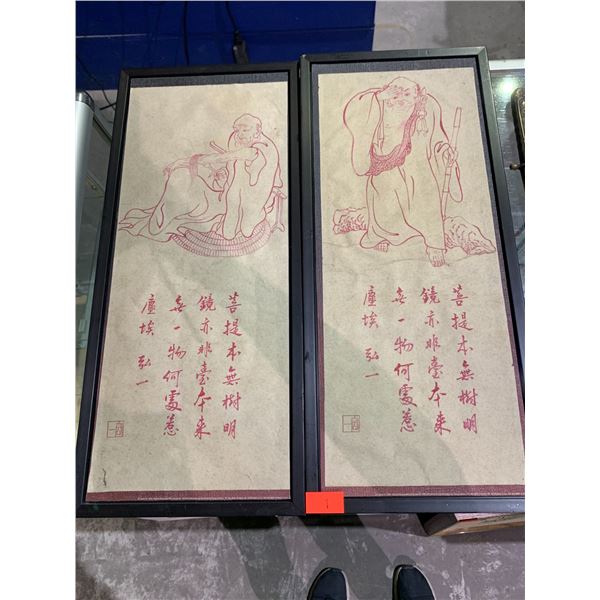 菩提本無樹明
鏡亦非臺本来
無一物何處惹
塵埃 弘一
菩提本無樹明
鏡亦非臺本来
無一物何處惹
塵埃 弘一
1